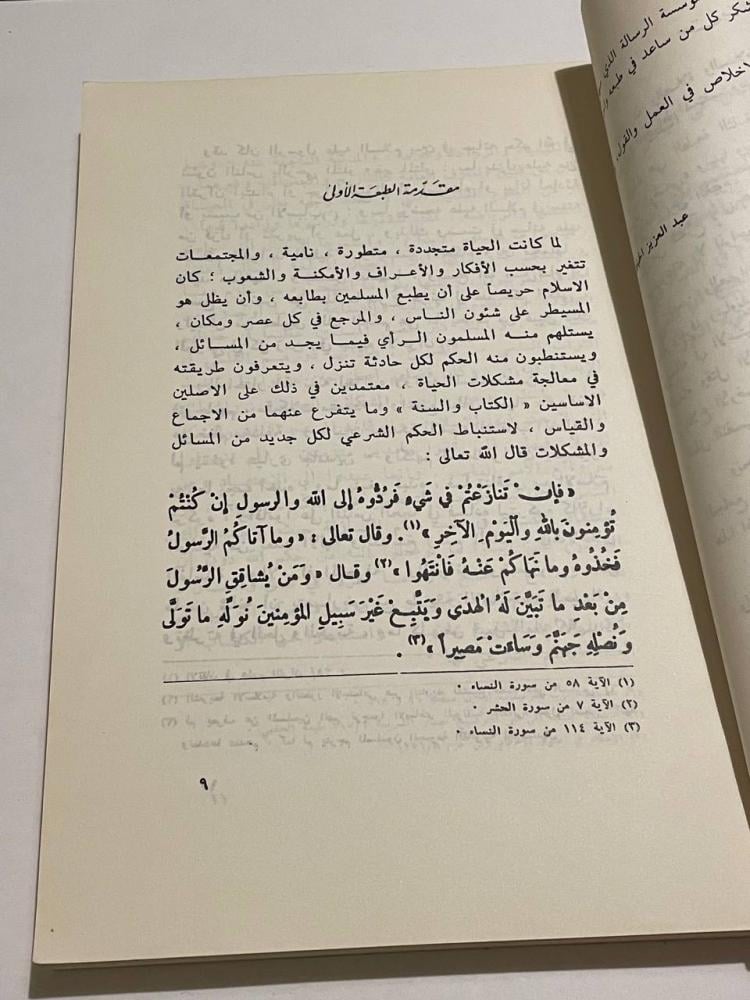 مؤسسة الرسالة
شكر كل من ساعد في طبعه
الاخلاص في العمل والقول
عبد العزيز
مقدمة الطبعة الأولى
لما كانت الحياة متجددة ، متطورة ، نامية ، والمجتمعات
تتغير بحسب الأفكار والأعراف والأمكنة والشعوب ؛ كان
الاسلام حريصاً على أن يطبع المسلمين بطابعه ، وأن يظل هو
المسيطر على شئون الناس ، والمرجع في كل عصر ومكان ،
يستلهم منه المسلمون الرأي فيما يجد من المسائل ،
ويستنطبون منه الحكم لكل حادثة تنزل ، ويتعرفون طريقته
في معالجة مشكلات الحياة ، معتمدين في ذلك على الاصلين
الاساسين « الكتاب والسنة » وما يتفرع عنهما من الاجماع
والقياس ، لاستنباط الحكم الشرعي لكل جديد من المسائل
والمشكلات قال الله تعالى :
« فإنْ تَنازَعْتُمْ في شَيءٍ فَرُدُّوهُ إلى الله والرسولِ إنْ كُنْتُمْ
تُؤمِنونَ باللهِ واليَوْمِ الآخِرِ »(١). وقال تعالى : « وما آتاكُمُ الرَّسولُ
فَخُذُوهُ وما نَهاكُمْ عَنْهُ فَانْتَهُوا »(٢) وقال « وَمَنْ يُشاقِقِ الرَّسُولَ
مِنْ بَعْدِ ما تَبَيَّنَ لَهُ الهُدَي وَيَتَّبِعْ غَيْرَ سَبِيلِ المُؤمِنينَ نُوَلِّهِ ما تَوَلَّى
وَنُصْلِهِ جَهَنَّمَ وَسَاءَتْ مَصِيراً »(٣) .
(١) الآية ٥٨ من سورة النساء .
(٢) الآية ٧ من سورة الحشر .
(٣) الآية ١١٤ من سورة النساء .
٩